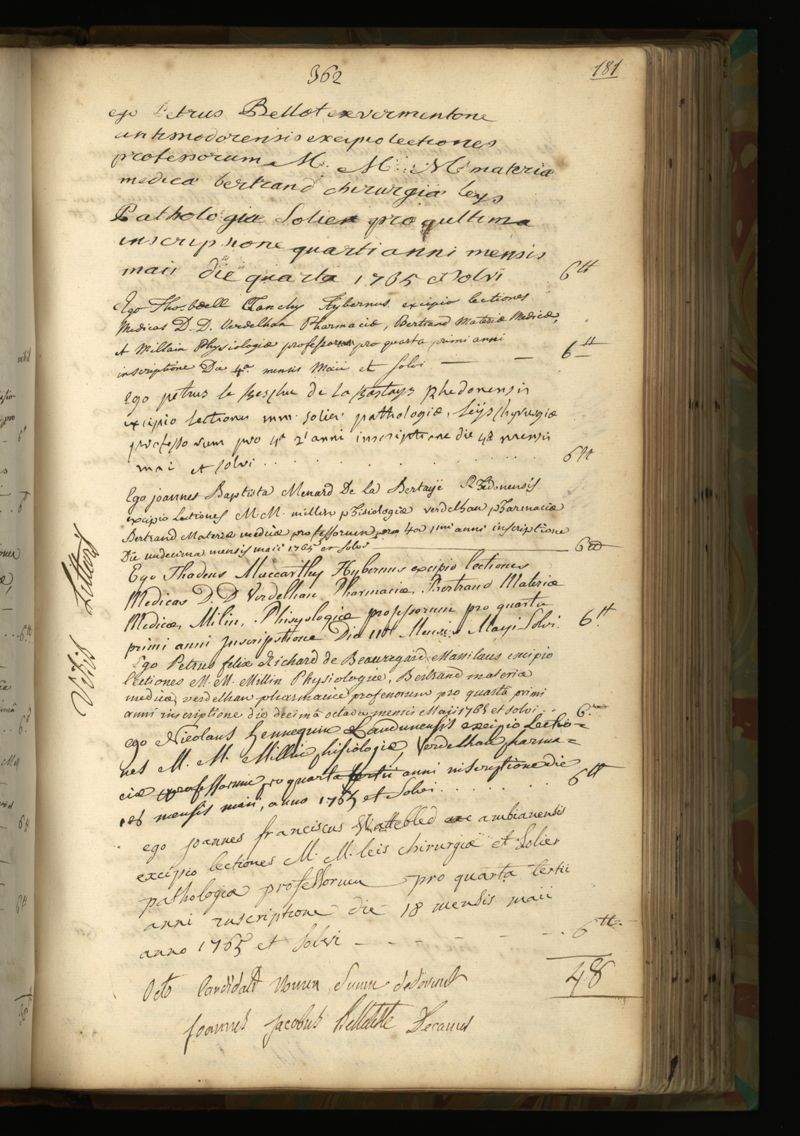 362
181
ego Petrus Bellot ex vermentone
antissiodorensis excipio lectiones
professorum M. M. M. materia
medica bertrand chirurgia leys
Pathologia Solier pro quultima
inscriptione quarti anni mensis
maii die quarta 1765 et Solvi 6 tt
Ego Thos. Clanchy Hybernus excipio lectiones
Medicas D.D. Verdelhan Pharmaciæ, Bertrand Materiæ Medicæ,
et Millain Physiologiæ professorum pro quarta primi anni
inscriptione Die 4a mensis Maii et Solvi 6 tt
Ego petrus le de La Bastays Rhedonensis
excipio lectiones mm. Solier pathologiæ, Leys chyrurgiæ
professorum pro 4a 2i anni inscriptione die 4a mensis
mai et solvi 6 tt
Ego joannes Baptista Menard De La Bertaye Rhedonensis
excipio Lectiones M.M. millin phisiologiæ verdelhan pharmaciæ
Bertrand Materiæ medicæ professorum pro 4a 1mi anni inscriptione
Die undecima mensis maii 1765 et Solvi 6 tt
Ego Thadeus Maccarthy Hybernus excipio lectiones
Medicas D.D. Verdelhan Pharmaciæ, Bertrand Materiæ
Medicæ, Milin, Phisyologiæ professorum pro quarta
primi anni Inscripstione Die 11a Mensis Mayi Solvi 6 tt
Ego Petrus felix Richard de Beauregard Manilaus excipio
lectiones M.M. Millin Physiologiæ, Bertrand materia
medica, verdelhan pharmaciæ professorum pro quartâ primi
anni inscriptione die decimâ octava mensis Maii 1765 et solvi 6
ego Nicolaus hennequin Laudunensis excipio Lectio-
nes M. M. Millin phisiologiæ, Verdelhan pharma-
ciæ professorum pro quarta tertii anni inscriptione die
18a mensis maii, anno 1765 et Solvi 6 tt
ego joannes franciscus ambianensis
excipio lectiones M. M. leis chirurgiæ et Solier
pathologiæ professorum pro quarta tertii
anni inscriptione die 18 mensis maii
anno 1765 et Solvi 6 tt
48
Octo Candidati nomen Suum dederunt
Joannes Jacobus Belleteste Decanus